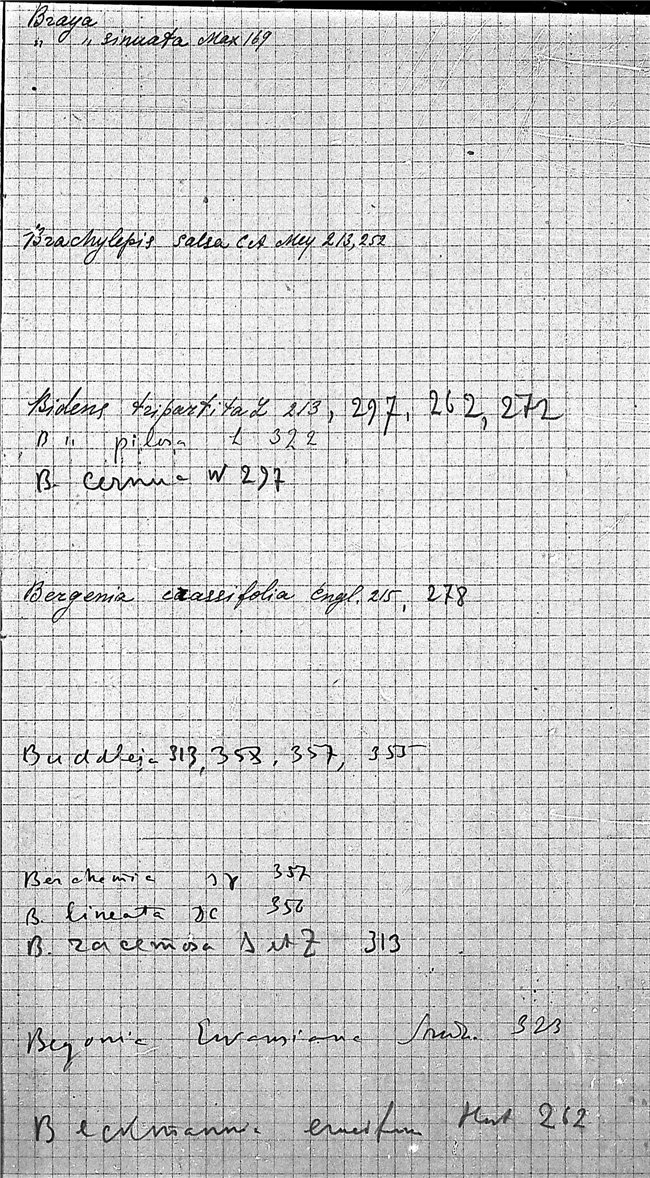 Braya
" " sinuata Max 169
Brachylepis salsa CA Mey 213, 252
Bidens tripartita L 213, 297, 262, 272
B " pilosa L 322
B. cernua W 297
Bergenia crassifolia Engl. 215, 278
Buddleja 313, 358, 357, 355
Berchemia sp 357
B. lineata DC 356
B. racemosa S et Z 313
Begonia Evansiana 323
Beckmannia eruciform Host 262